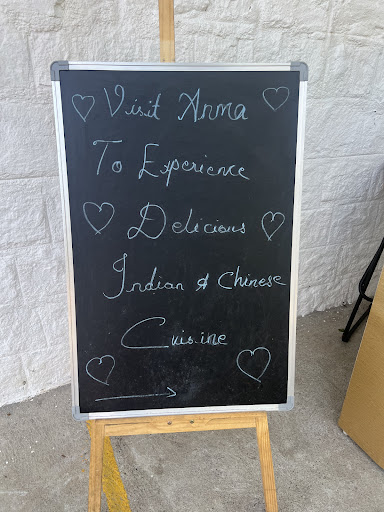 Visit Anna
To Experience
Delicious
Indian & Chinese
Cuisine